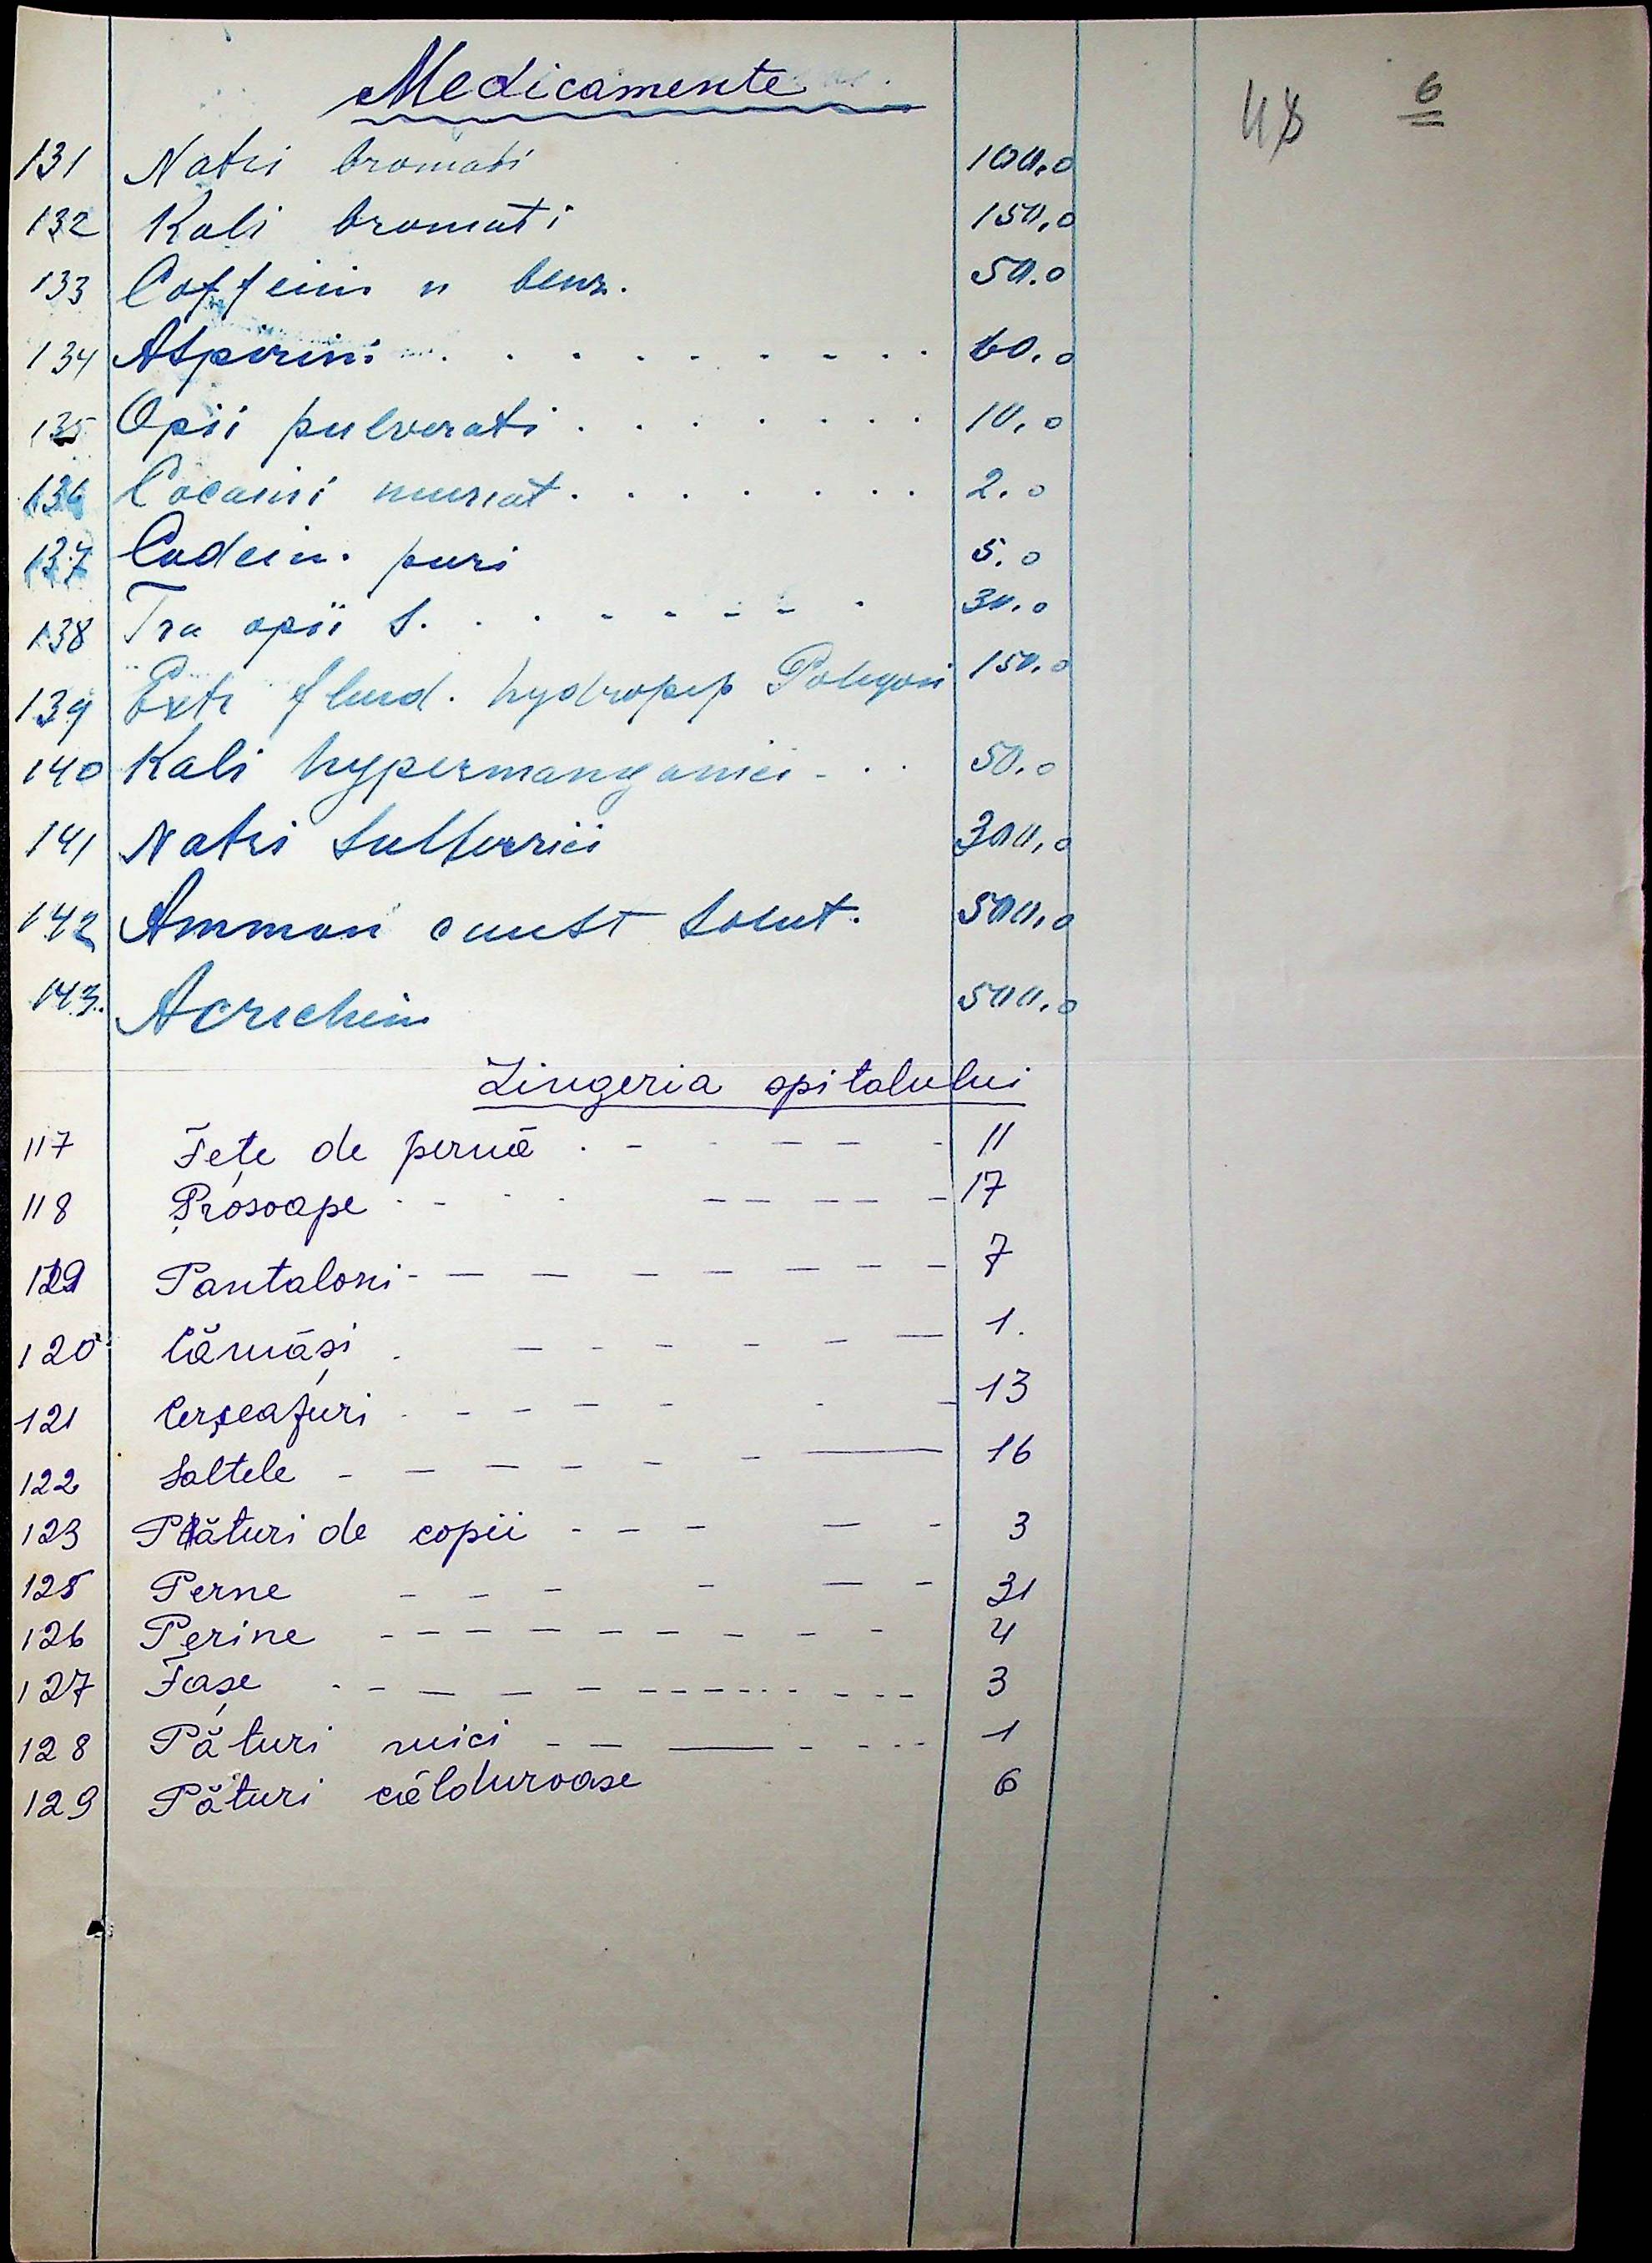 Medicamente
48 6
131 Natri bromati 100.0
132 Kali bromati 150.0
133 Coffeini n benz. 50.0
134 Asperini . . . . . . . . . 60.0
135 Opii pulverati . . . . . . . 10.0
136 Cocaini muriat . . . . . . . 2.0
137 Codein. puri 5.0
138 Tra opii s. . . - - - - . 30.0
139 Extr fluid. hydropip Poligoni 150.0
140 Kali hypermanganici - . . 50.0
141 Natri sulfurici 300.0
142 Ammon caust solut. 500.0
143. Acrichin 500.0
Lingeria spitalului
117 Fețe de pernă . - - - - - - 11
118 Prosoape - - - - - - - - 17
119 Pantaloni - - - - - - - - 7
120 Cămăși . - - - - - - 1.
121 Cerșeafuri - - - - - - - 13
122 Saltele - - - - - - - 16
123 Pături de copii - - - - - 3
125 Perne - - - - - - 31
126 Perine - - - - - - - - - 4
127 Fașe - - - - - - - - - - - - 3
128 Pături mici - - - - - - - 1
129 Pături călduroase 6